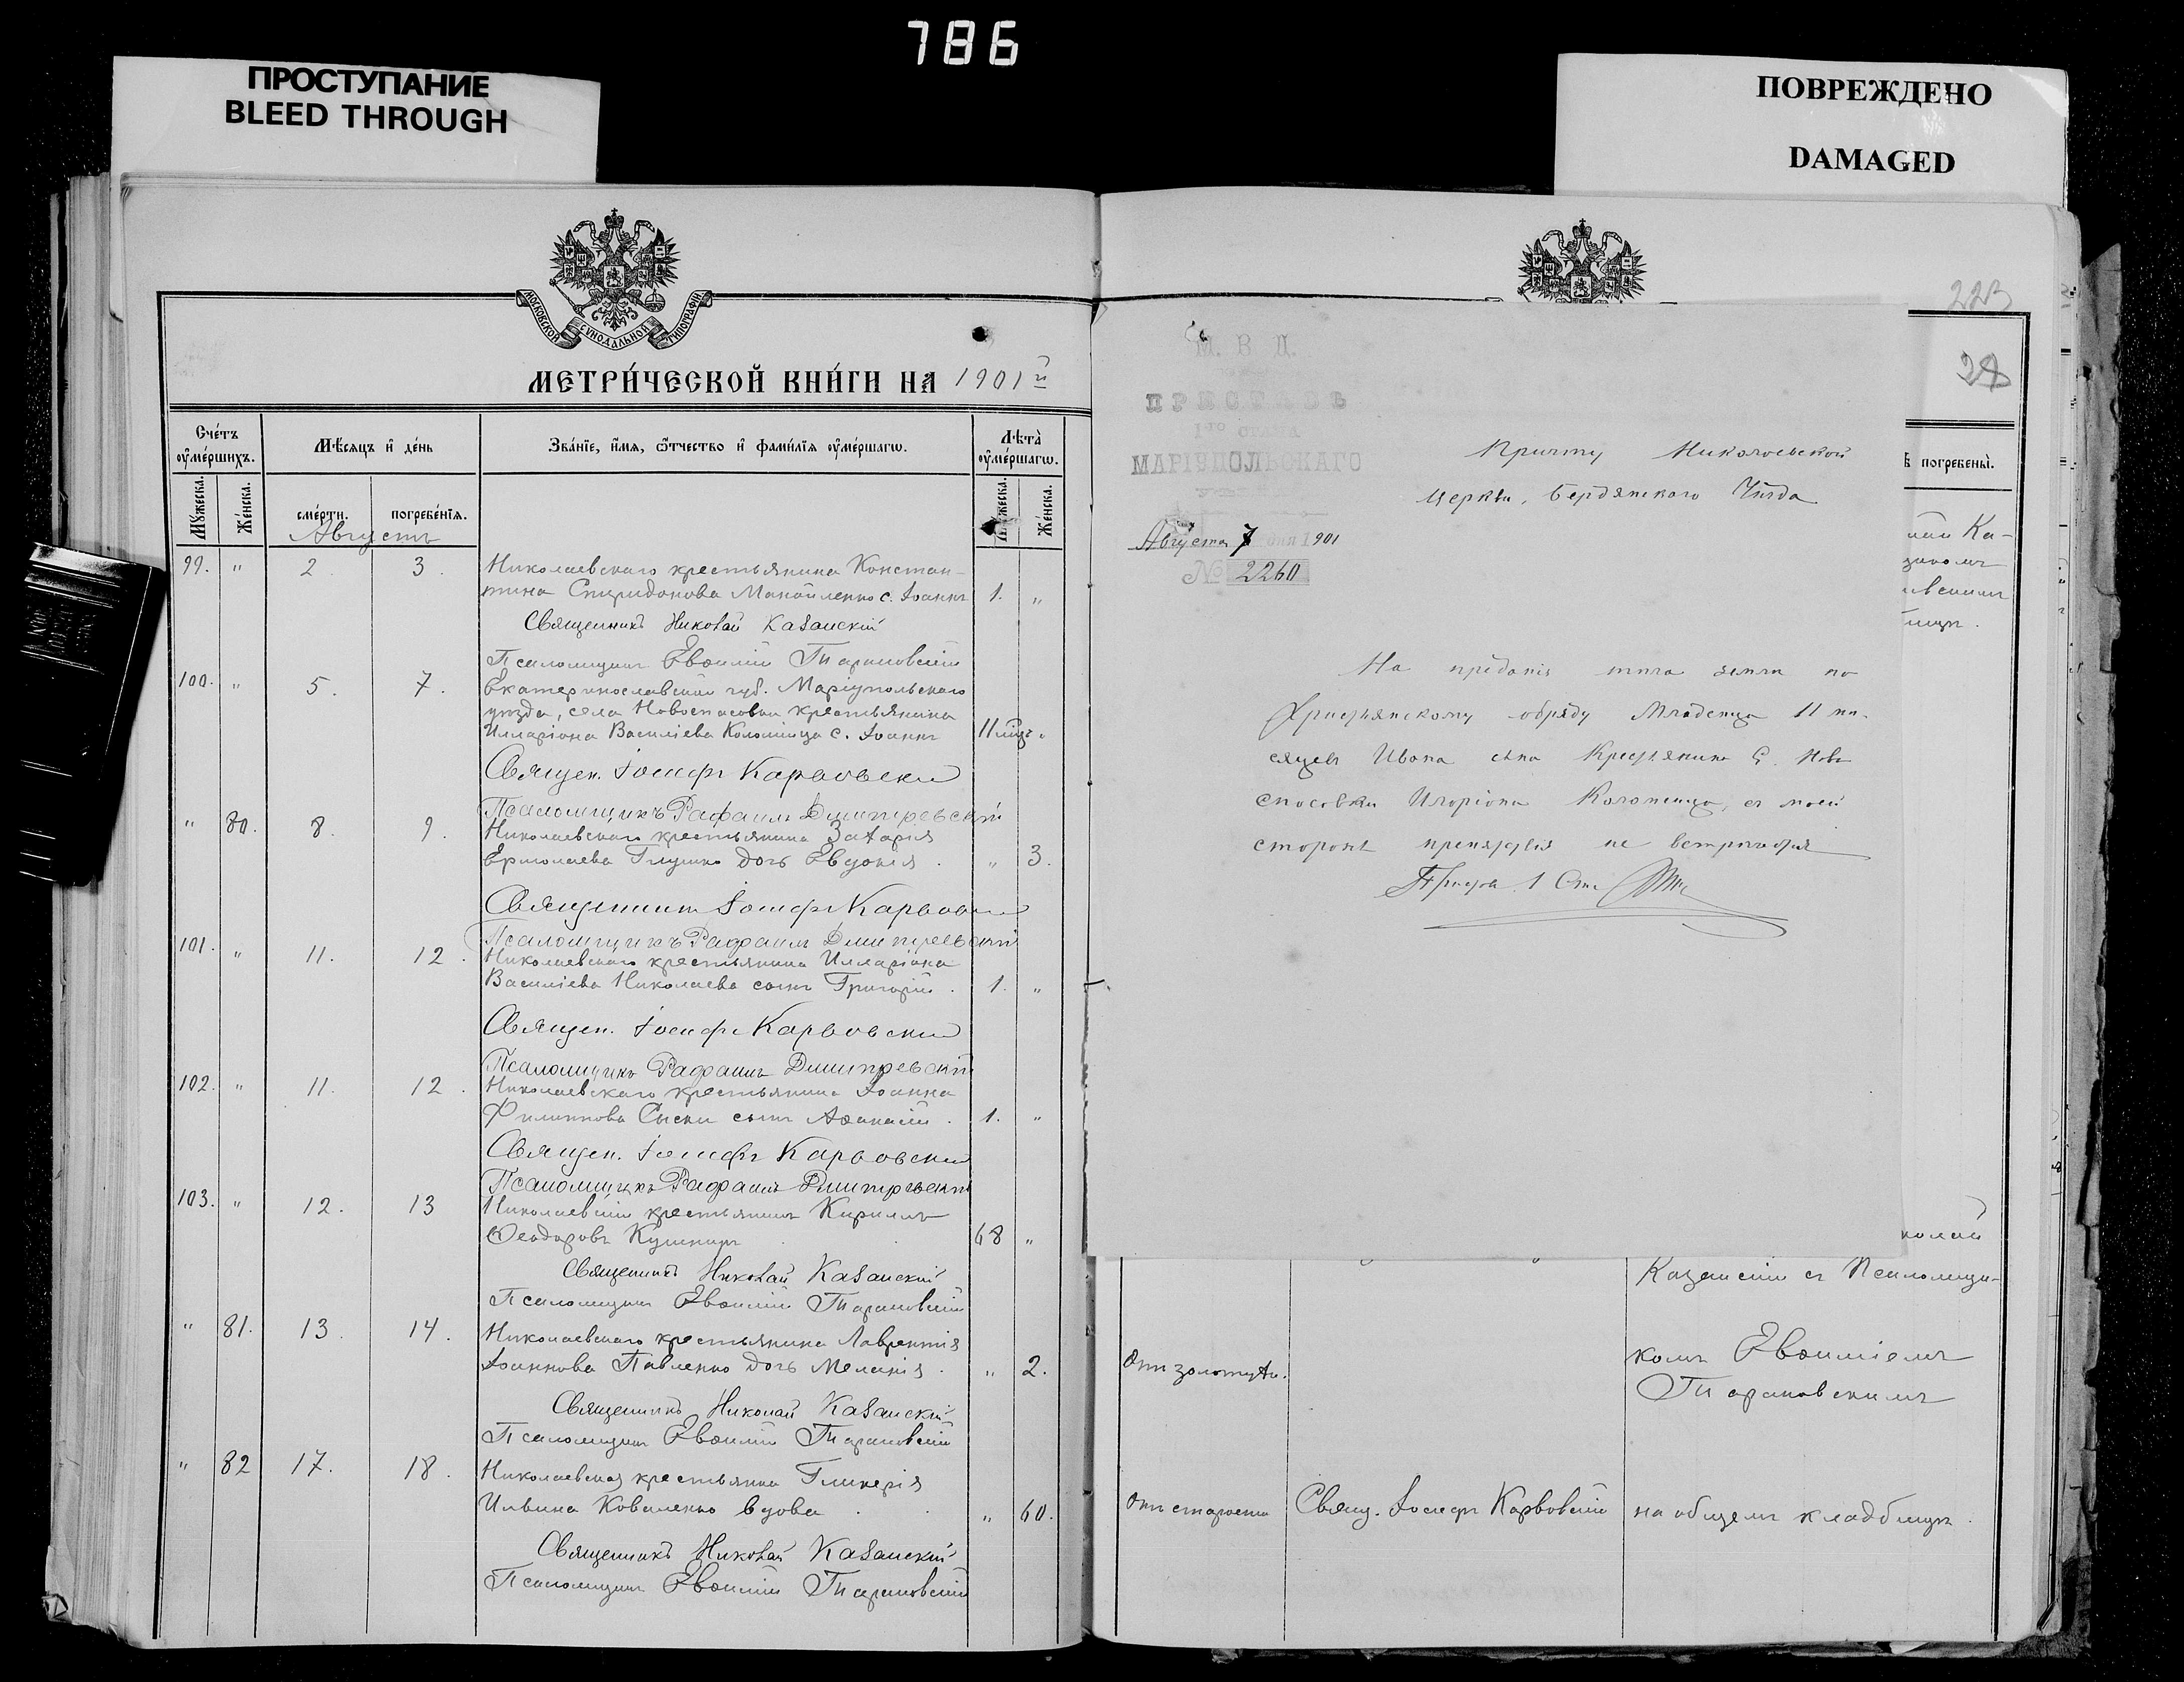 786
ПРОСТУПАНИЕ
BLEED THROUGH
ПОВРЕЖДЕНО
DAMAGED
МОСКОВСКОЙ СѴНОДАЛЬНОЙ ТИПОГРАФІИ
МЕТРИ́ЧЕСКОЙ КНИ́ГИ НА 1901 й
Сче́тъ ѹ҆ме́ршихъ.
Мѣ́сяцъ и҆ де́нь
Зва́нїе, и҆́мя, ѻ҆́тчество и҆ фами́лїя ѹ҆ме́ршагѡ.
Лѣта̀ ѹ҆ме́ршагѡ.
Мꙋ́жеска.
Же́нска.
сме́рти.
погребе́нїя.
Мꙋ́жеска.
Же́нска.
Августъ
99. " 2 3. Николаевскаго крестьянина Констан-
тина Спиридонова Манойленко с. Іоаннъ 1. "
Священникъ Николай Казанскій
Псаломщикъ Евѳимій Тарановскій
100. " 5. 7. Екатеринославской губ. Маріупольскаго
уѣзда, села Новоспасовки крестьянина
Илларіона Василіева Коломійца с. Іоаннъ 11 мѣс. "
Священ. Іосифъ Карвовскій
Псаломщикъ Рафаилъ Димитревскій
" 80. 8. 9. Николаевскаго крестьянина Захарія
Ермолаева Глушко дочь Евдокія. " 3.
Священникъ Іосифъ Карвовскій
Псаломщикъ Рафаилъ Димитревскій
101. " 11. 12. Николаевскаго крестьянина Илларіона
Василіева Николаева сынъ Григорій. 1. "
Священ. Іосифъ Карвовскій
Псаломщикъ Рафаилъ Димитревскій
102. " 11. 12. Николаевскаго крестьянина Іоанна
Филиппова Сыски сынъ Аѳанасій. 1. "
Священ. Іосифъ Карвовскій
Псаломщикъ Рафаилъ Димитревскій
103. " 12. 13 Николаевскій крестьянинъ Кириллъ
Ѳеодоровъ Кушниръ 68 "
Священникъ Николай Казанскій
Псаломщикъ Евѳимій Тарановскій
" 81. 13. 14. Николаевскаго крестьянина Лаврентія
Іоаннова Павленко дочь Меланія. " 2.
Священникъ Николай Казанскій
Псаломщикъ Евѳимій Тарановскій
" 82 17. 18. Николаевская крестьянка Гликерія
Ильина Коваленко вдова. " 60.
Священникъ Николай Казанскій
Псаломщикъ Евѳимій Тарановскій
223
М. В. Д.
ПРИСТАВЪ
1го СТАНА
МАРІУПОЛЬСКАГО
Августа 7 дня 1901
№ 2260
Причту Николаевской
церкви, Бердянскаго Уѣзда
На преданіе тѣла землѣ по
Христіянскому обряду Младенца 11 мѣ-
сяцевъ Ивана сына Крестьянина С. Ново
спасовки Иларіона Коломійца, съ моей
стороны препятствія не встрѣчается
Приставъ 1 Ста
погребены̀.
Казанскій съ Псаломщи-
Отъ золотухи.
комъ Евѳиміемъ
Тарановскимъ
Отъ старости
Свящ. Іосифъ Карвовскій
на общемъ кладбищѣ.